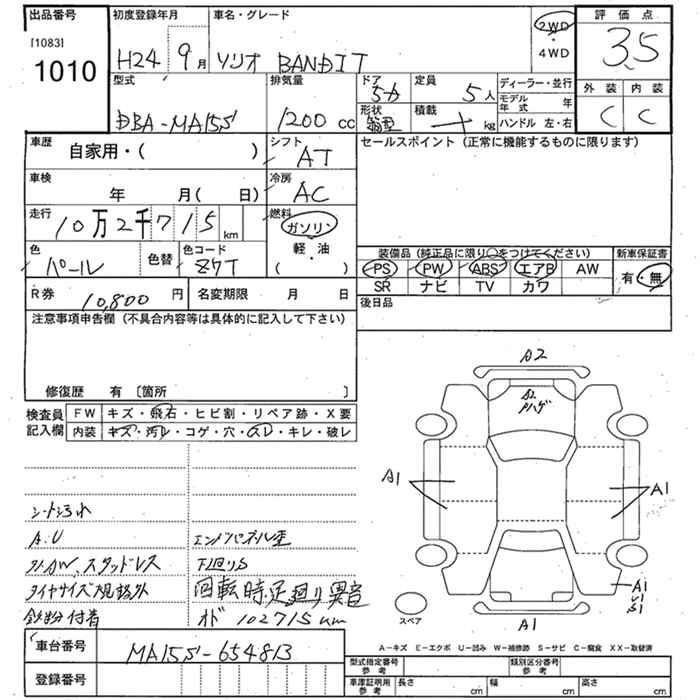 出品番号 初度登録年月 車名・グレード 評価点
[1083] 1010 H24 9月 ソリオ BANDIT 2WD・4WD 3.5
型式 排気量 ドア 定員 ディーラー・並行 外装 内装
DBA-MA15S 1200cc 5人 モデル年式 年 C C
形状 箱型 積載 kg ハンドル 左・右
車歴 自家用・( ) シフト AT セールスポイント(正常に機能するものに限ります)
車検 年 月( 日) 冷房 AC
走行 10万2千715km 燃料 ガソリン・軽・油 ( )
色 パール 色替 色コード Z7T
装備品(純正品に限り○をつけてください) 新車保証書
PS PW ABS エアB AW 有・無
SR ナビ TV カワ
R券 10,800円 名変期限 月 日 後日品
注意事項申告欄(不具合内容等は具体的に記入して下さい)
修復歴 有 〔箇所 〕
検査員記入欄 FW キズ・飛石・ヒビ割・リペア跡・X要
内装 キズ・汚レ・コゲ・穴・スレ・キレ・破レ
A2
A2
ハゲ
A1 A1
シート汚れ
A.U エンドパネル歪
外AW、スタッドレス 下回りS
タイヤサイズ規格外 回転時足廻り異音
鉄粉付着 オド 102715km
A1
スペア
A1
車台番号 MA15S-654813
登録番号
A-キズ E-エクボ U-凹み W-補修跡 S-サビ C-腐食 XX-取替済
型式指定番号 参考 類別区分番号 参考
車庫証明用 参考 長さ cm 幅 cm 高さ cm